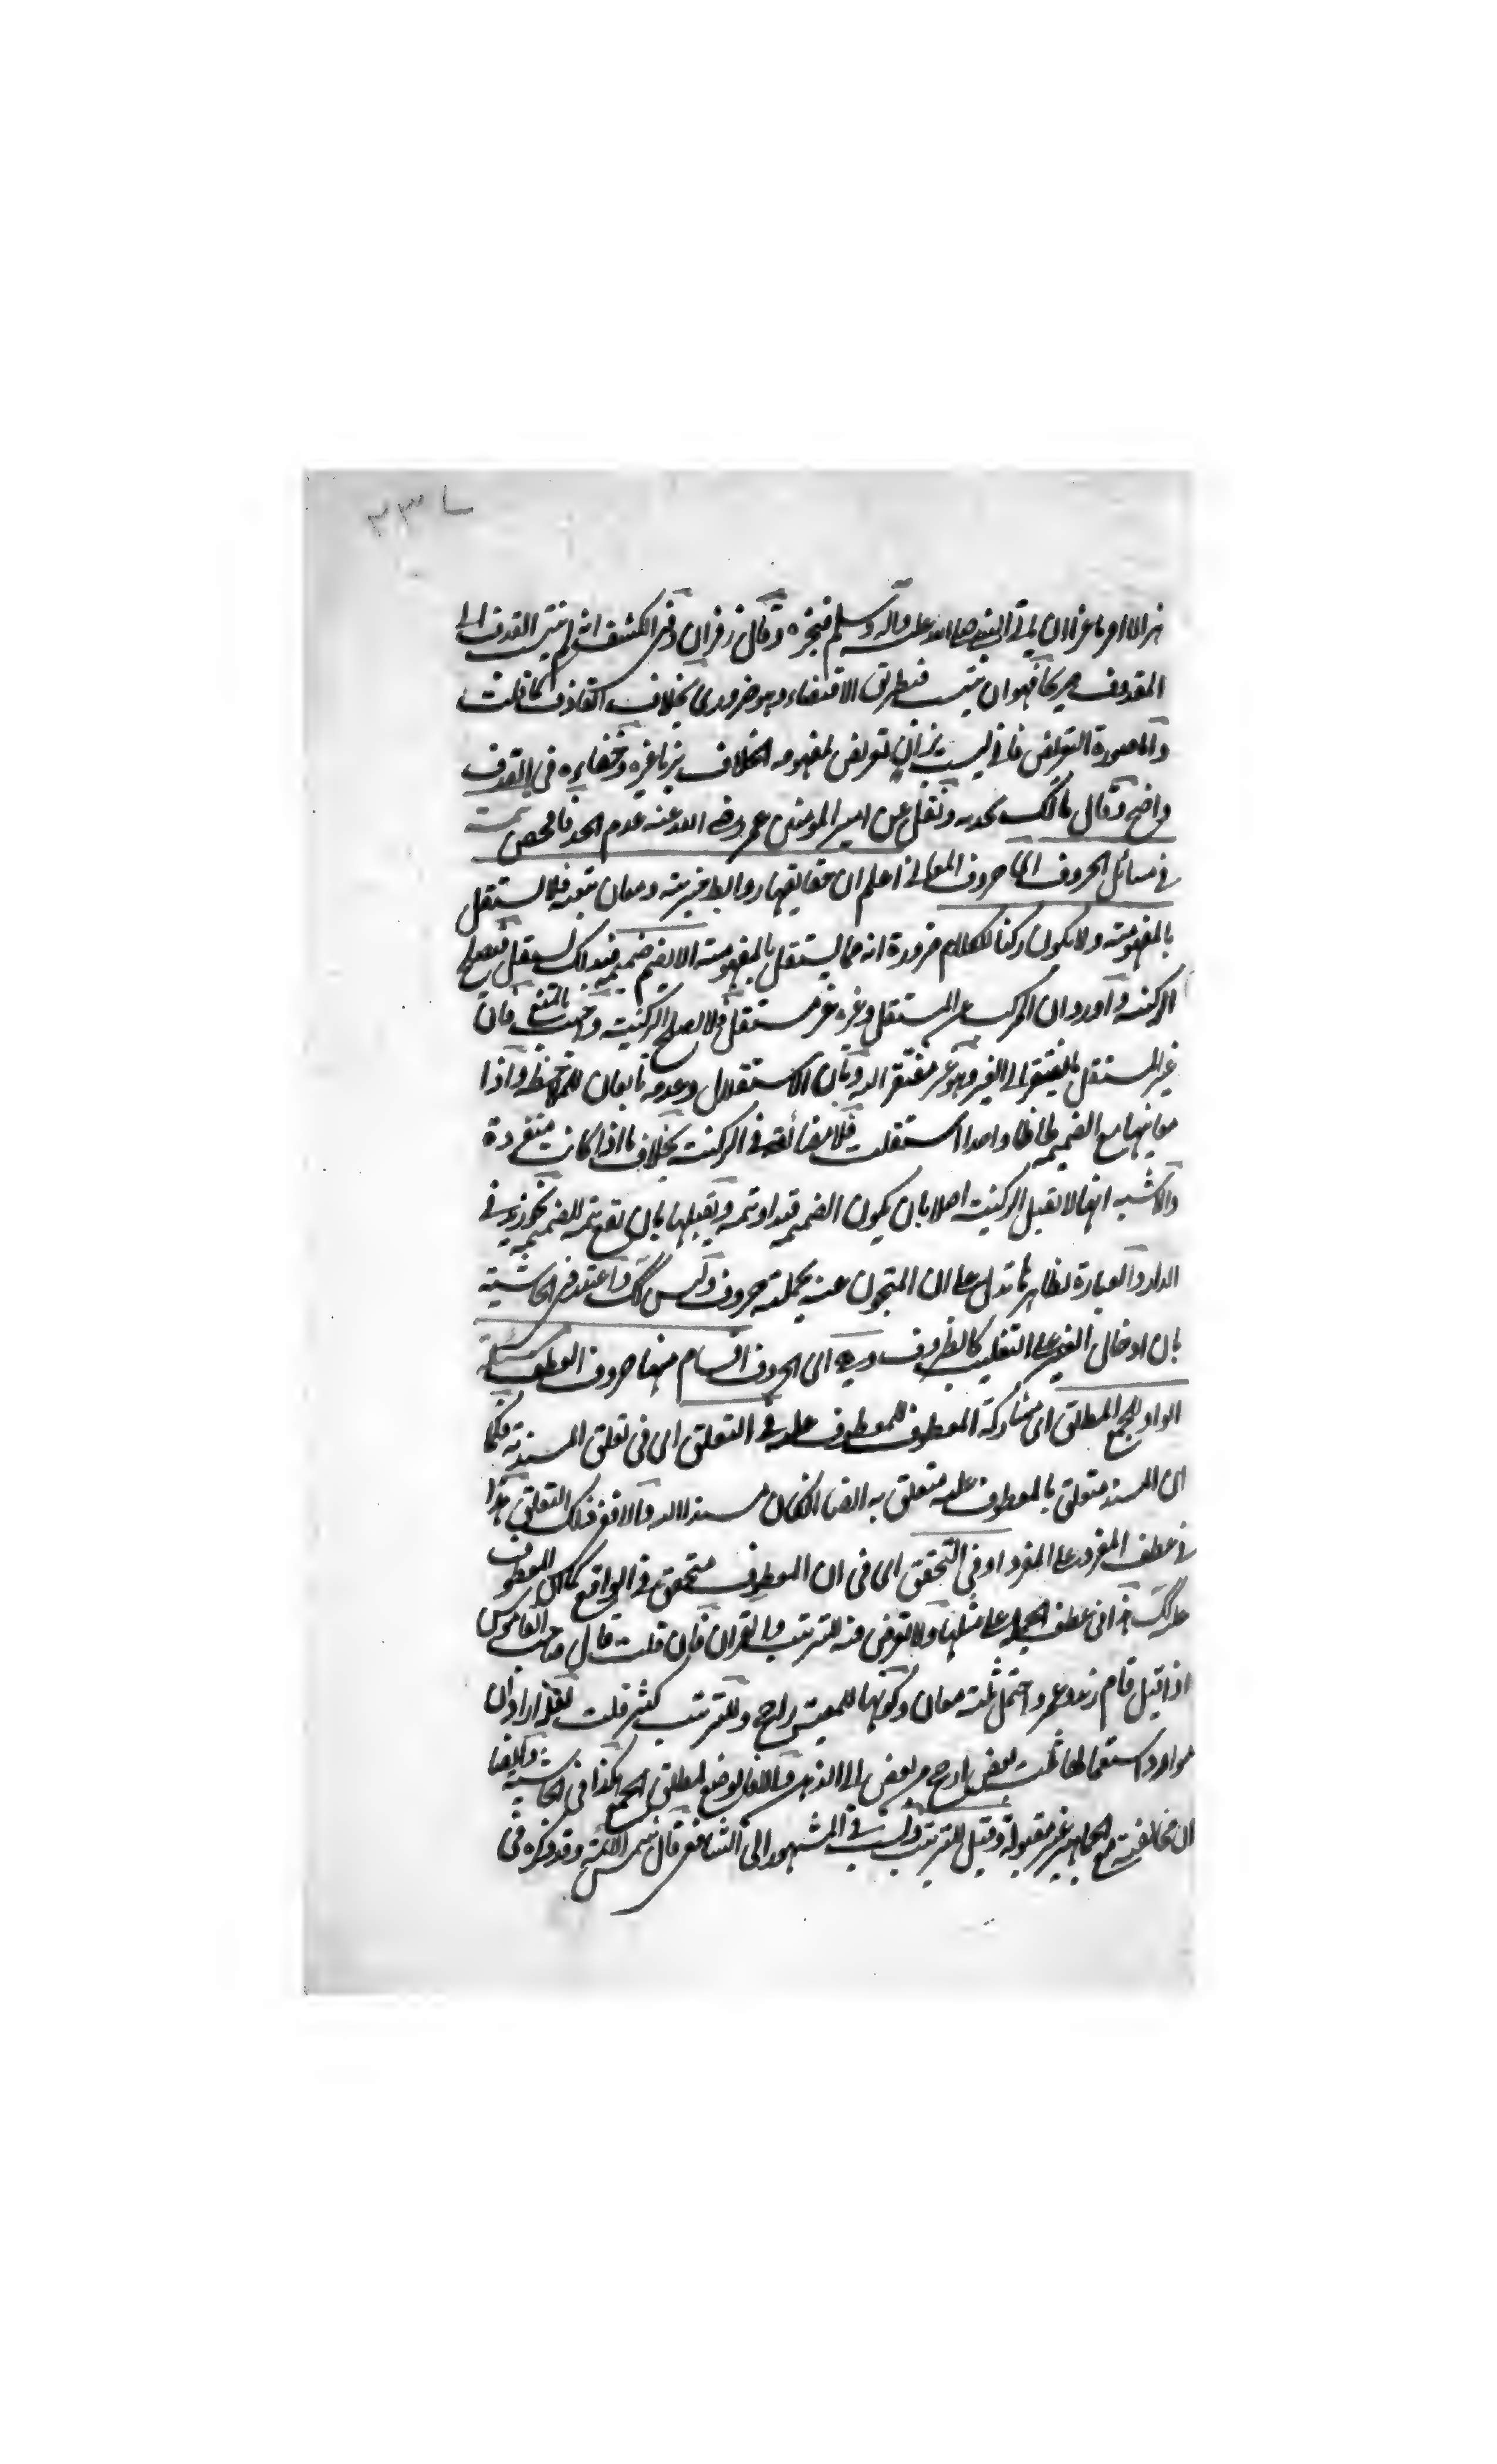 ٢٣٢
هزال امر ماعزا ان ياتي النبي صلى الله عليه واله وسلم فيخبره وقال زفر ان وفي الكشف انه لم ينسب القذف الى
المقذوف صريحا فهو ان يثبت فبطريق الاقتضاء وهو ضروري بخلاف القاذف كما قلت
واما صورة التعريض فاني ليست بزان تعريض لمفهومه الخلاف بزنا غيره وخفاءه في القذف
واضح وقال مالك يحد به ونقل عن امير المؤمنين عمر رضي الله عنه عدم الحد فالمحص
في مسائل الحروف اي حروف المعاني اعلم ان حقايقها روابط جزئية ومعان تبعية فلا تستقل
بالمفهومية ولا يكون ركنا للكلام ضرورة انه مما يستقل بالمفهومية الا بضم ضميمة فبذلك يستقل فتصلح
الركنية واورد ان المركب من المستقل وغيره غير مستقل فلا يصلح الركنية واجيب بالمنع فان
غير المستقل ما يفتقر الى الغير وهو غير مفتقر اليه وبان الاستقلال وعدمه تابعان للملاحظة واذا
معانيها مع الضميمة لحاظا واحدا استقلت فلا مضائقة في الركنية بخلاف ما اذا كانت منفردة
والاشبه انها لا تقبل الركنية اصلا بان يكون الضميمة قيدا وتتمة وتقبلها بان تقع تتمة للضميمة نحو زيد في
الدار والعبارة بظاهرها تدل على ان المبحوث عنه بجملته حروف وليس كك واعتذر في الحاشية
بان ادخال الغير على التغليب كالظروف وهي اي الحروف اقسام منها حروف العطف مسئلة
الواو للجمع المطلق اي مشاركة المعطوف للمعطوف عليه في التعلق اي في تعلق المسند به فكما
ان المسند متعلق بالمعطوف عليه متعلق به ايضا ان كان مسندا اليه والا فغير ذلك التعلق هذا
في عطف المفرد على المفرد او في التحقق اي في ان المعطوف متحقق في الواقع كما ان المعطوف
عليه كك هذا في عطف الجملة على مثلها ولا تعرض فيه للترتيب والقران فان قلت قال صاحب القاموس
اذا قيل قام زيد وعمرو احتمل ثلثة معان وكونها للمعية راجح وللترتيب كثير قلت لعله اراد ان
موارد استعمالها ثلث بعض ارجح من بعض الى الذهن والا فالوضع لمطلق الجمع هكذا في الحاشية وايضا
ان مخالفته مع الجماهير غير مقبولة وقيل للترتيب ونسب في المشهور الى الشافعي قال شمس الائمة وقد ذكره في